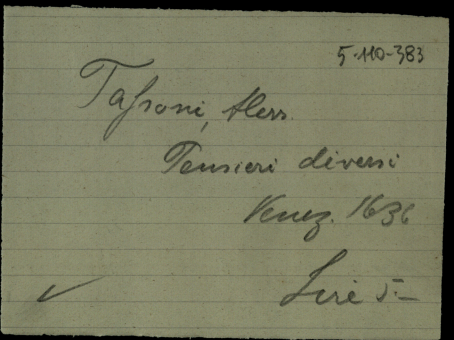 5-110-383
Taſsoni, Aless.
Pensieri diversi
Venez. 1636
Lire 5.—